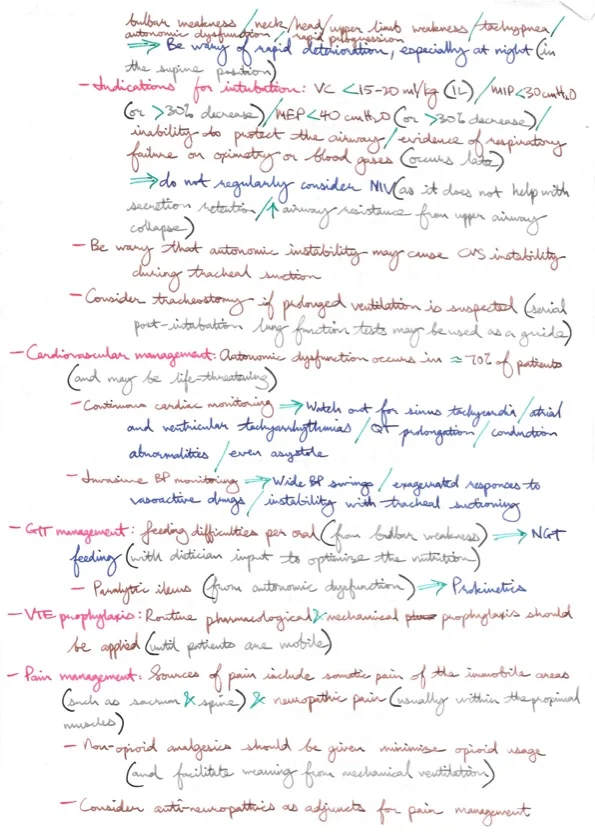 bulbar weakness / neck/head/upper limb weakness / tachypnea/
autonomic dysfunction / rapid progression
⇒ Be wary of rapid deterioration, especially at night (in
the supine position)
- Indications for intubation: VC <15-20 ml/kg (1L) / MIP<30cmH2O
(or >30% decrease) / MEP<40 cmH2O (or >30% decrease) /
inability to protect the airway / evidence of respiratory
failure on oximetry or blood gases (occurs late)
⇒ do not regularly consider NIV (as it does not help with
secretion retention / ↑ airway resistance from upper airway
collapse)
- Be wary that autonomic instability may cause CVS instability
during tracheal suction
- Consider tracheostomy if prolonged ventilation is suspected (serial
post-intubation lung function tests may be used as a guide)
- Cardiovascular management: Autonomic dysfunction occurs in ≈ 70% of patients
(and may be life-threatening)
- Continuous cardiac monitoring ⇒ Watch out for sinus tachycardia / atrial
and ventricular tachyarrhythmias / QT prolongation / conduction
abnormalities / even asystole
- Invasive BP monitoring ⇒ Wide BP swings / exagerated responses to
vasoactive drugs / instability with tracheal suctioning
- GIT management: feeding difficulties per oral (from bulbar weakness) ⇒ NGT
feeding (with dietician input to optimize the nutrition)
- Paralytic ileus (from autonomic dysfunction) ⇒ Prokinetics
- VTE prophylaxis: Routine pharmacological & mechanical prophylaxis should
be applied (until patients are mobile)
- Pain management: Sources of pain include somatic pain of the immobile areas
(such as sacrum & spine) & neuropathic pain (usually within the proximal
muscles)
- Non-opioid analgesics should be given minimise opioid usage
(and facilitate weaning from mechanical ventilation)
- Consider anti-neuropathics as adjuncts for pain management